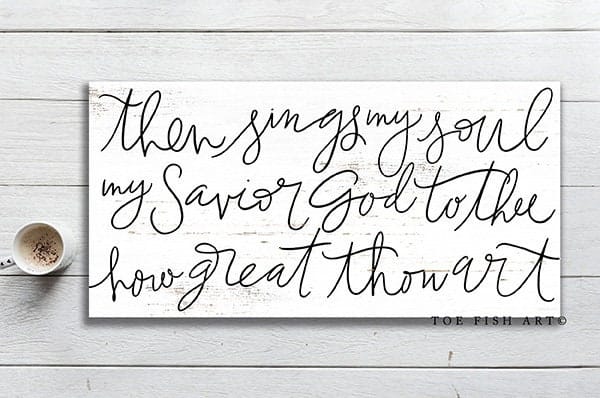 then sings my soul
my Savior God to thee
how great thou art
TOE FISH ART©